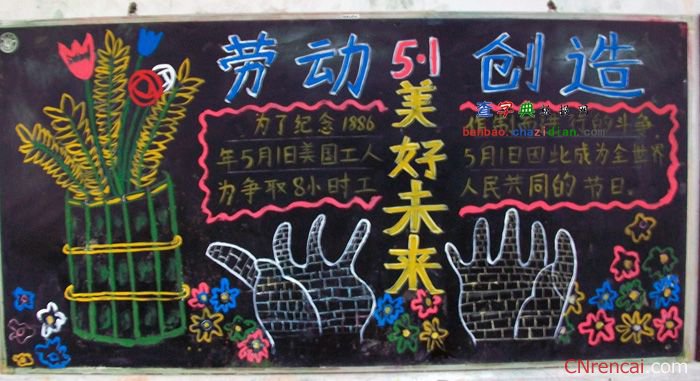 劳动 5·1 创造
美好未来
为了纪念1886
年5月1日美国工人
为争取8小时工
作 的斗争
5月1日因此成为全世界
人民共同的节日。
查字典
banbao.chazidian.com
CNrencai.com